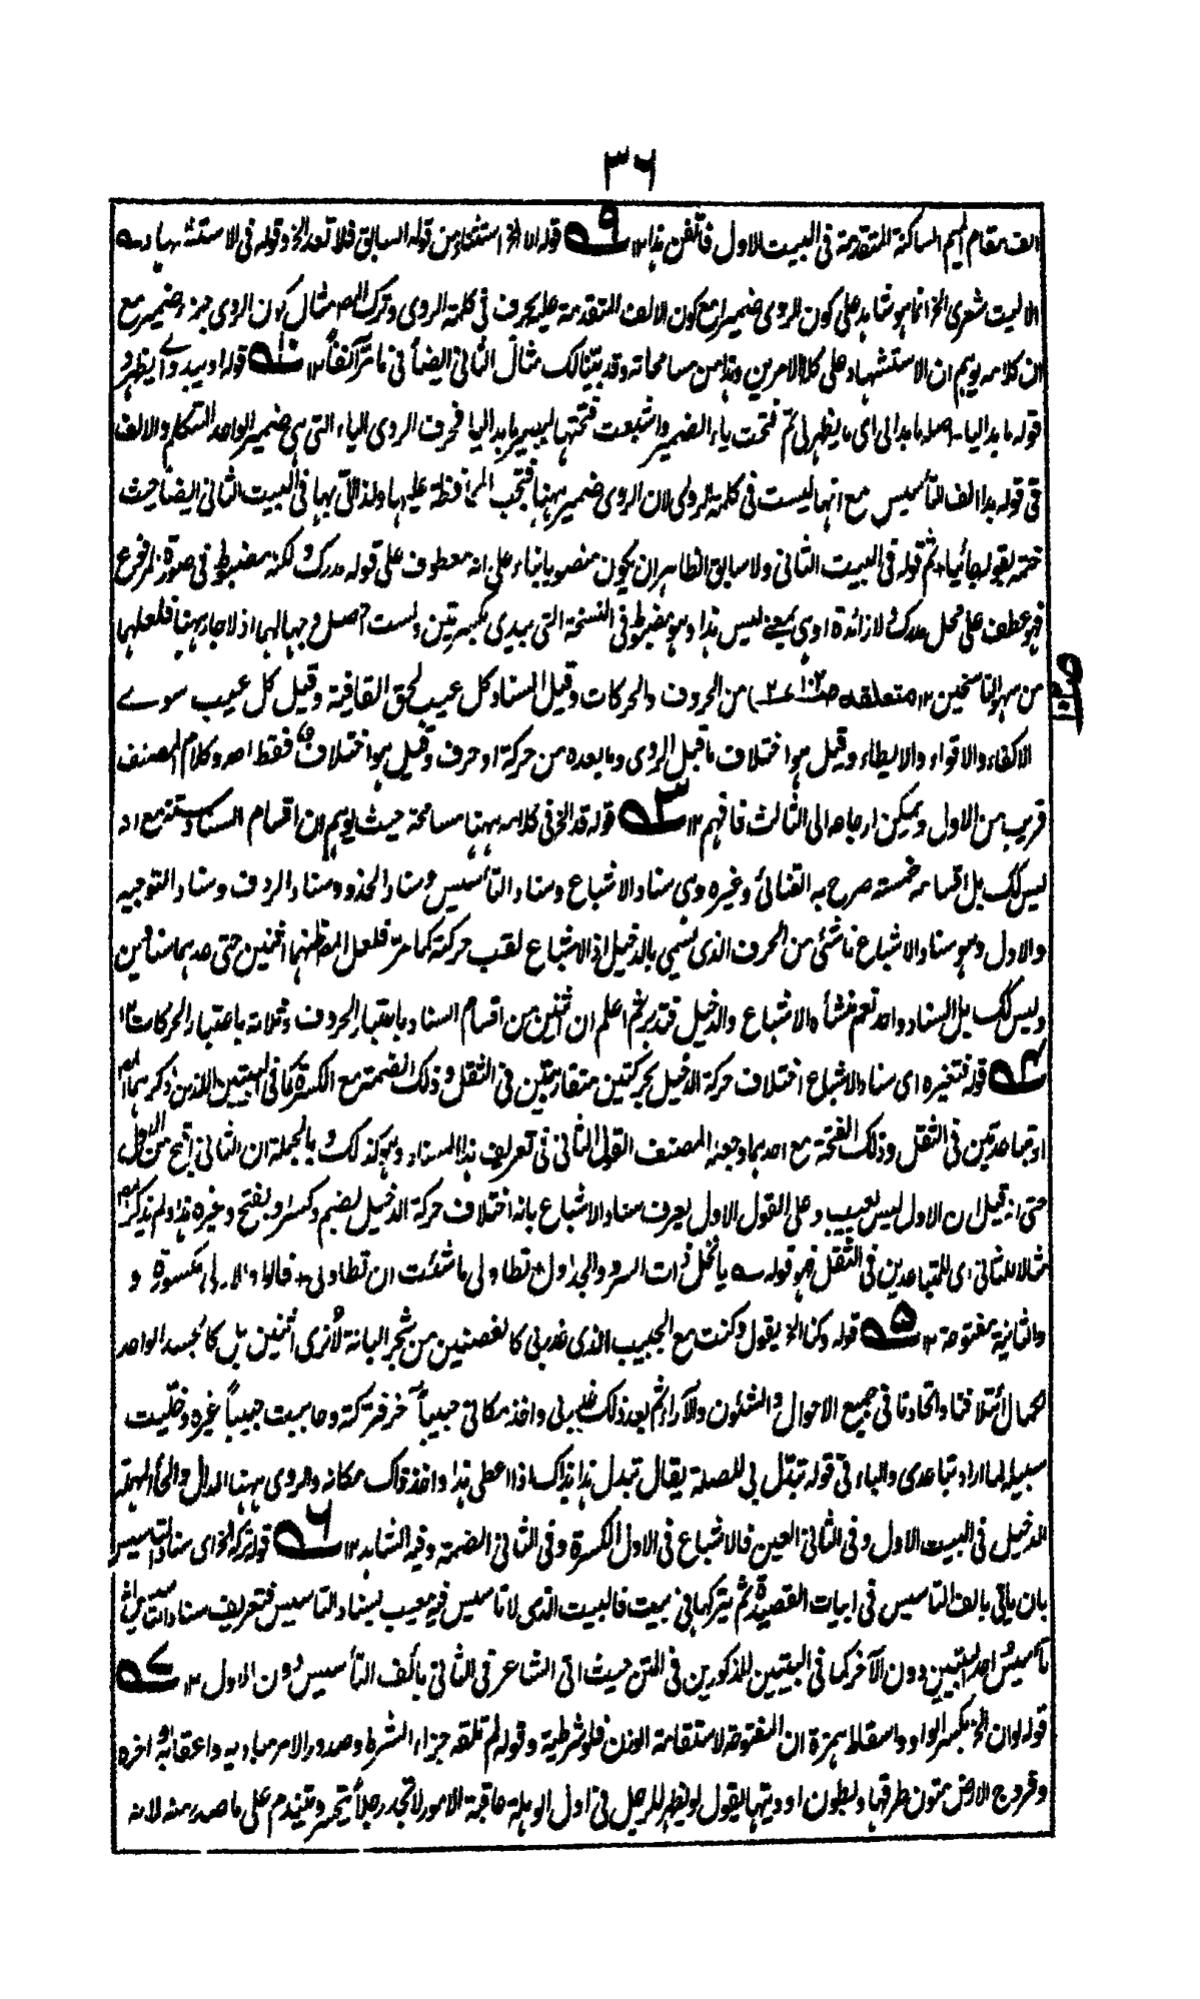 ٣٦
الف مقام الميم الساكنة المتقدمة فى البيت الاول فأتقن هذا ١٢ ٩ قوله الا الخ استثناء من قوله السابق فلا تعد الخ وقوله فى الاستشهاد
الا ليت شعرى الخ انما هو شاهد على كون الروى ضميرا مع كون الالف المتقدمة عليه بحرف فى كلمة الروى وترك المص مثال كون الروى جزء ضمير مع
ان كلامه يوهم ان الاستشهاد على كلا الامرين وهذا من مسامحاته وقد بينا لك مثال الثانى ايضاً فى ما مر آنفاً ١٢ ١٠ قوله او يبدو أى يظهر و
قوله ما بدا ليا اصله ما بدا لى اى ما يظهر لى ثم فتحت ياء الضمير واشبعت فتحتها ليصير ما بدا ليا فحرف الروى الياء التى هى ضمير الواحد المتكلم والالف
فى قوله بدا الف التأسيس مع انها ليست فى كلمة الروى لان الروى ضمير ههنا فتجب المحافظة عليها ولذا اتى بها فى البيت الثانى ايضا حيث
ختمه بقوله جائيا ثم قوله فى البيت الثانى ولا سابق الظاهر ان يكون منصوبا بناء على انه معطوف على قوله مدرك لكنه مضبوط فى صورة المرفوع
فهو عطف على محل مدرك ولا زائدة او هى بمعنى ليس هذا وهو مضبوط فى النسخة التى بيدى بكسرتين ولست احصل وجها لهما اذ لا جار ههنا فلعلهما
من سهو الناسخين ١٢ متعلقه صـ من الحروف والحركات وقيل السناد كل عيب لحق القافية وقيل كل عيب سوى
الاكفاء والاقواء والايطاء وقيل هو اختلاف ما قبل الروى وما بعده من حركة او حرف وقيل هو اختلاف فقط اهـ وكلام المصنف
قريب من الاول ويمكن ارجاعه الى الثالث فافهم ١٢ ٣ قوله قد الخ فى كلامه ههنا مسامحة حيث يوهم ان اقسام السناد ستة مع انه
ليس كك بل اقسامه خمسة صرح به القنائى وغيره وهى سناد الاشباع وسناد التأسيس وسناد الحذو وسناد الردف وسناد التوجيه
والاول وهو سناد الاشباع ناشئ من الحرف الذى يسمى بالدخيل اذ الاشباع لقب حركته كما مر فلعل المص ظنهما اثنين حتى عدهما سنادين
وليس كك بل السناد واحد نعم منشأه الاشباع والدخيل فتدبر ثم اعلم ان اثنين من اقسام السناد باعتبار الحروف وثلاثة باعتبار الحركات ١٢
٤ قوله فتغيره اى سناد الاشباع اختلاف حركة الدخيل بحركتين متقاربتين فى الثقل وذلك الضمة مع الكسرة كما فى البيتين اللذين ذكرهما المص
او متباعدتين فى الثقل وذلك الفتحة مع احدهما وجعله المصنف القول الثانى فى تعريف هذا السناد وهو كذلك وبالجملة ان الثانى اقبح من الاول
حتى انه قيل ان الاول ليس بعيب وعلى القول الاول يعرف سناد الاشباع بانه اختلاف حركة الدخيل بضم وكسر او بفتح وغيره هذا ولم يذكر المص
مثالا للثانى اى للمتباعدين فى الثقل فهو قوله يا نخل ذات السرو والجداول تطاولى ما شئت ان تطاولى فالواو الاولى مكسورة و
والثانية مفتوحة ١٢ ٥ قوله وكنا الخ يقول وكنت مع الحبيب الذى غدر بى كالغصنين من شجر البانة لا نرى اثنين بل كالجسد الواحد
لكمال ائتلافنا واتحادنا فى جميع الاحوال والشئون والآراء ثم بعد ذلك غدر بى واخذ مكانى حبيباً آخر فتركته وصاحبت حبيباً غيره وخليت
سبيله لما اراد تباعدى والباء فى قوله تبدّل بى للصلة يقال تبدل هذا بذاك اذا اعطى هذا واخذ ذاك مكانه والروى ههنا الدال والحاء المهملة
الدخيل فى البيت الاول وفى الثانى العين فالاشباع فى الاول الكسرة وفى الثانى الضمة وفيه الشاهد ١٢ ٦ قوله تركه الخ اى سناد التأسيس
بان ياتى بالف التاسيس فى ابيات القصيدة ثم يتركها فى بيت فالبيت الذى لا تاسيس فيه معيب بسناد التاسيس فتعريف سناد التأسيس ان
تأسيس احد البيتين دون الآخر كما فى البيتين المذكورين فى المتن حيث اتى الشاعر فى الثانى بألف التأسيس دون الاول ١٢ ٧
قوله لو ان الخ بكسر الواو واسقاط همزة ان المفتوحة لاستقامة الوزن فلو شرطية وقوله لم تلقه جزاء الشرط وصدور الامر مباديه واعقابه اواخره
وفروج الارض متون طرقها وبطون اوديتها يقول لو يظهر للرجل فى اول الوهلة عاقبة الامور لا تجد رجلاً يتحسر ويتندم على ما صدر منه لانه